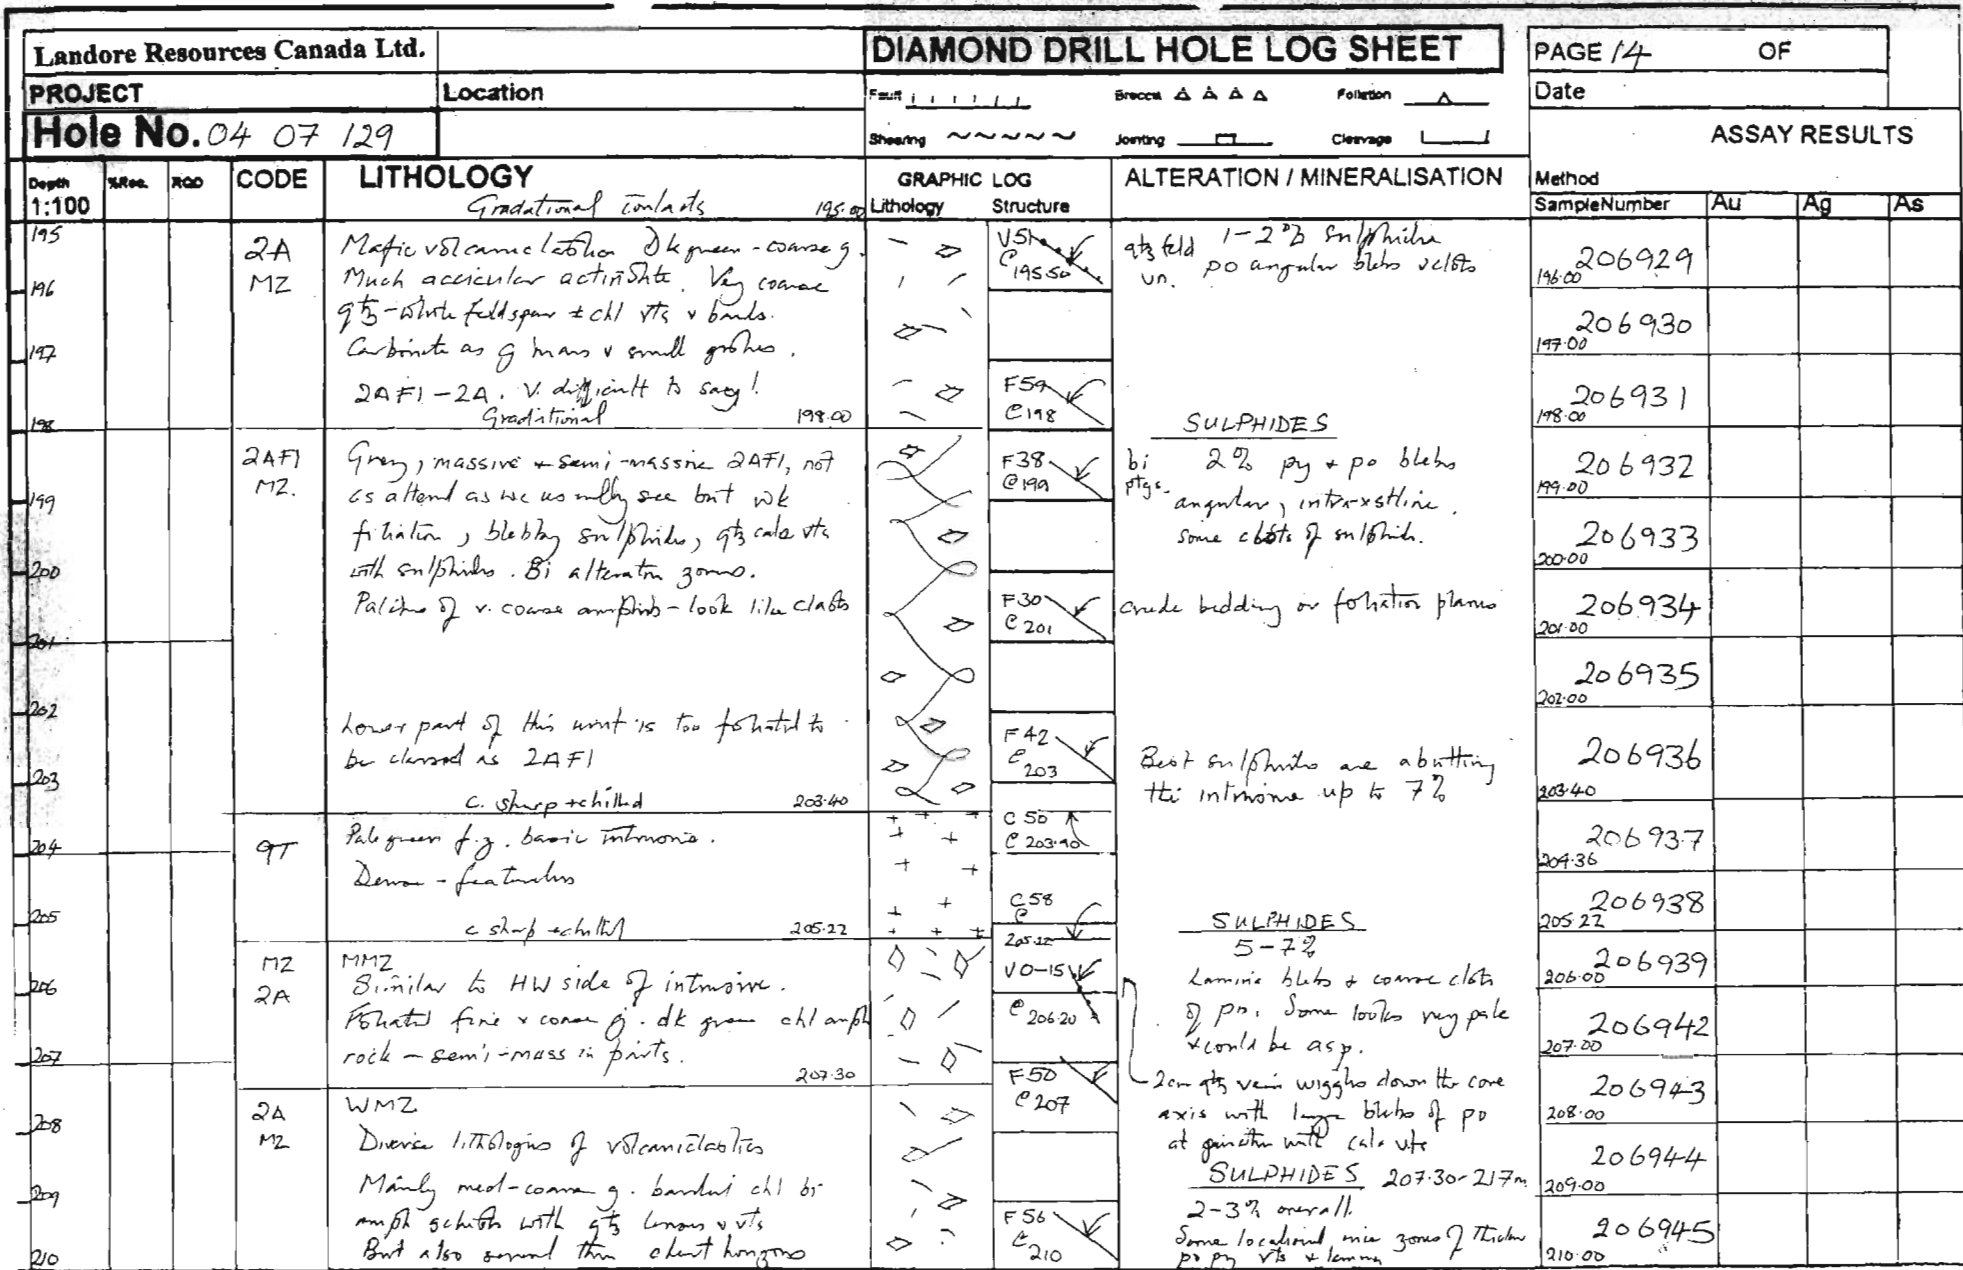 Landore Resources Canada Ltd.
DIAMOND DRILL HOLE LOG SHEET
PAGE 14 OF
PROJECT
Location
Fault
Breccia
Foliation
Date
Hole No. 04 07 129
Shearing
Jointing
Cleavage
ASSAY RESULTS
Depth
1:100
%Rec.
RQD
CODE
LITHOLOGY
GRAPHIC LOG
Lithology Structure
ALTERATION / MINERALISATION
Method
SampleNumber Au Ag As
Gradational contacts 195.00
195
196
197
198
199
200
201
202
203
204
205
206
207
208
209
210
2A
MZ
Mafic volcaniclastics Dk green - coarse g.
Much accicular actinolite. Very coarse
qtz-white feldspar ± chl vts & bands.
Carbonate as g mass & small
2AF1 - 2A. V. difficult to say!
Graditional 198.00
2AF1
MZ.
Grey, massive + semi-massive 2AF1, not
as altered as we usually see but wk
foliation, blebby sulphides, qtz calc vts
with sulphides. Bi alteration zones.
Patches of v. coarse amphib - look like clasts
Lower part of this unit is too foliated to
be classed as 2AF1
c. sharp + chilled 203.40
9T
Pale green f.g. basic intrusive.
Dense - featureless
c sharp + chilled 205.22
MZ
2A
MMZ
Similar to HW side of intrusive.
Foliated fine & coarse g. dk green chl amph
rock - semi-mass in parts.
207.30
2A
MZ
WMZ
Diverse lithologies of volcaniclastics
Mainly med-coarse g. banded chl bi
amph schists with qtz lenses & vts
But also several thin chert horizons
V51
@ 195.50
F59
@ 198
F38
@ 199
F30
@ 201
F42
@ 203
C 50
@ 203.40
C58
@
205.22
V0-15
@ 206.20
F50
@ 207
F56
@ 210
qtz feld
vn.
1-2% sulphides
po angular blebs & clots
SULPHIDES
bi
ptgs.
2% py + po blebs
angular, intra-xstline.
some clots of sulphide.
crude bedding or foliation planes
Best sulphides are abutting
the intrusive up to 7%
SULPHIDES
5-7%
Laminae blebs + coarse clots
of po. Some looks very pale
& could be asp.
2cm qtz vein wiggles down the core
axis with large blebs of po
at junction with calc vts
SULPHIDES 207.30-217m
2-3% overall
Some zones of
po py vts +
206929
196.00
206930
197.00
206931
198.00
206932
199.00
206933
200.00
206934
201.00
206935
202.00
206936
203.40
206937
204.36
206938
205.22
206939
206.00
206942
207.00
206943
208.00
206944
209.00
206945
210.00